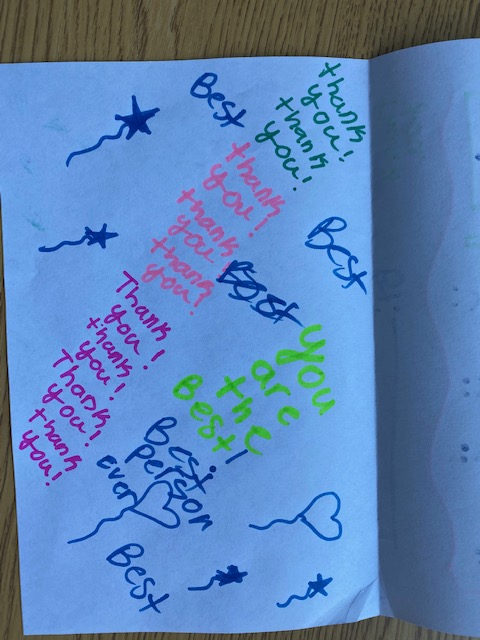 Best
thank
you!
thank
you!
thank
you!
thank
you!
thank
you!
Best
Best
Thank
you!
thank
you!
Thank
you!
thank
you!
you
are
the
Best!
Best
person
ever
Best